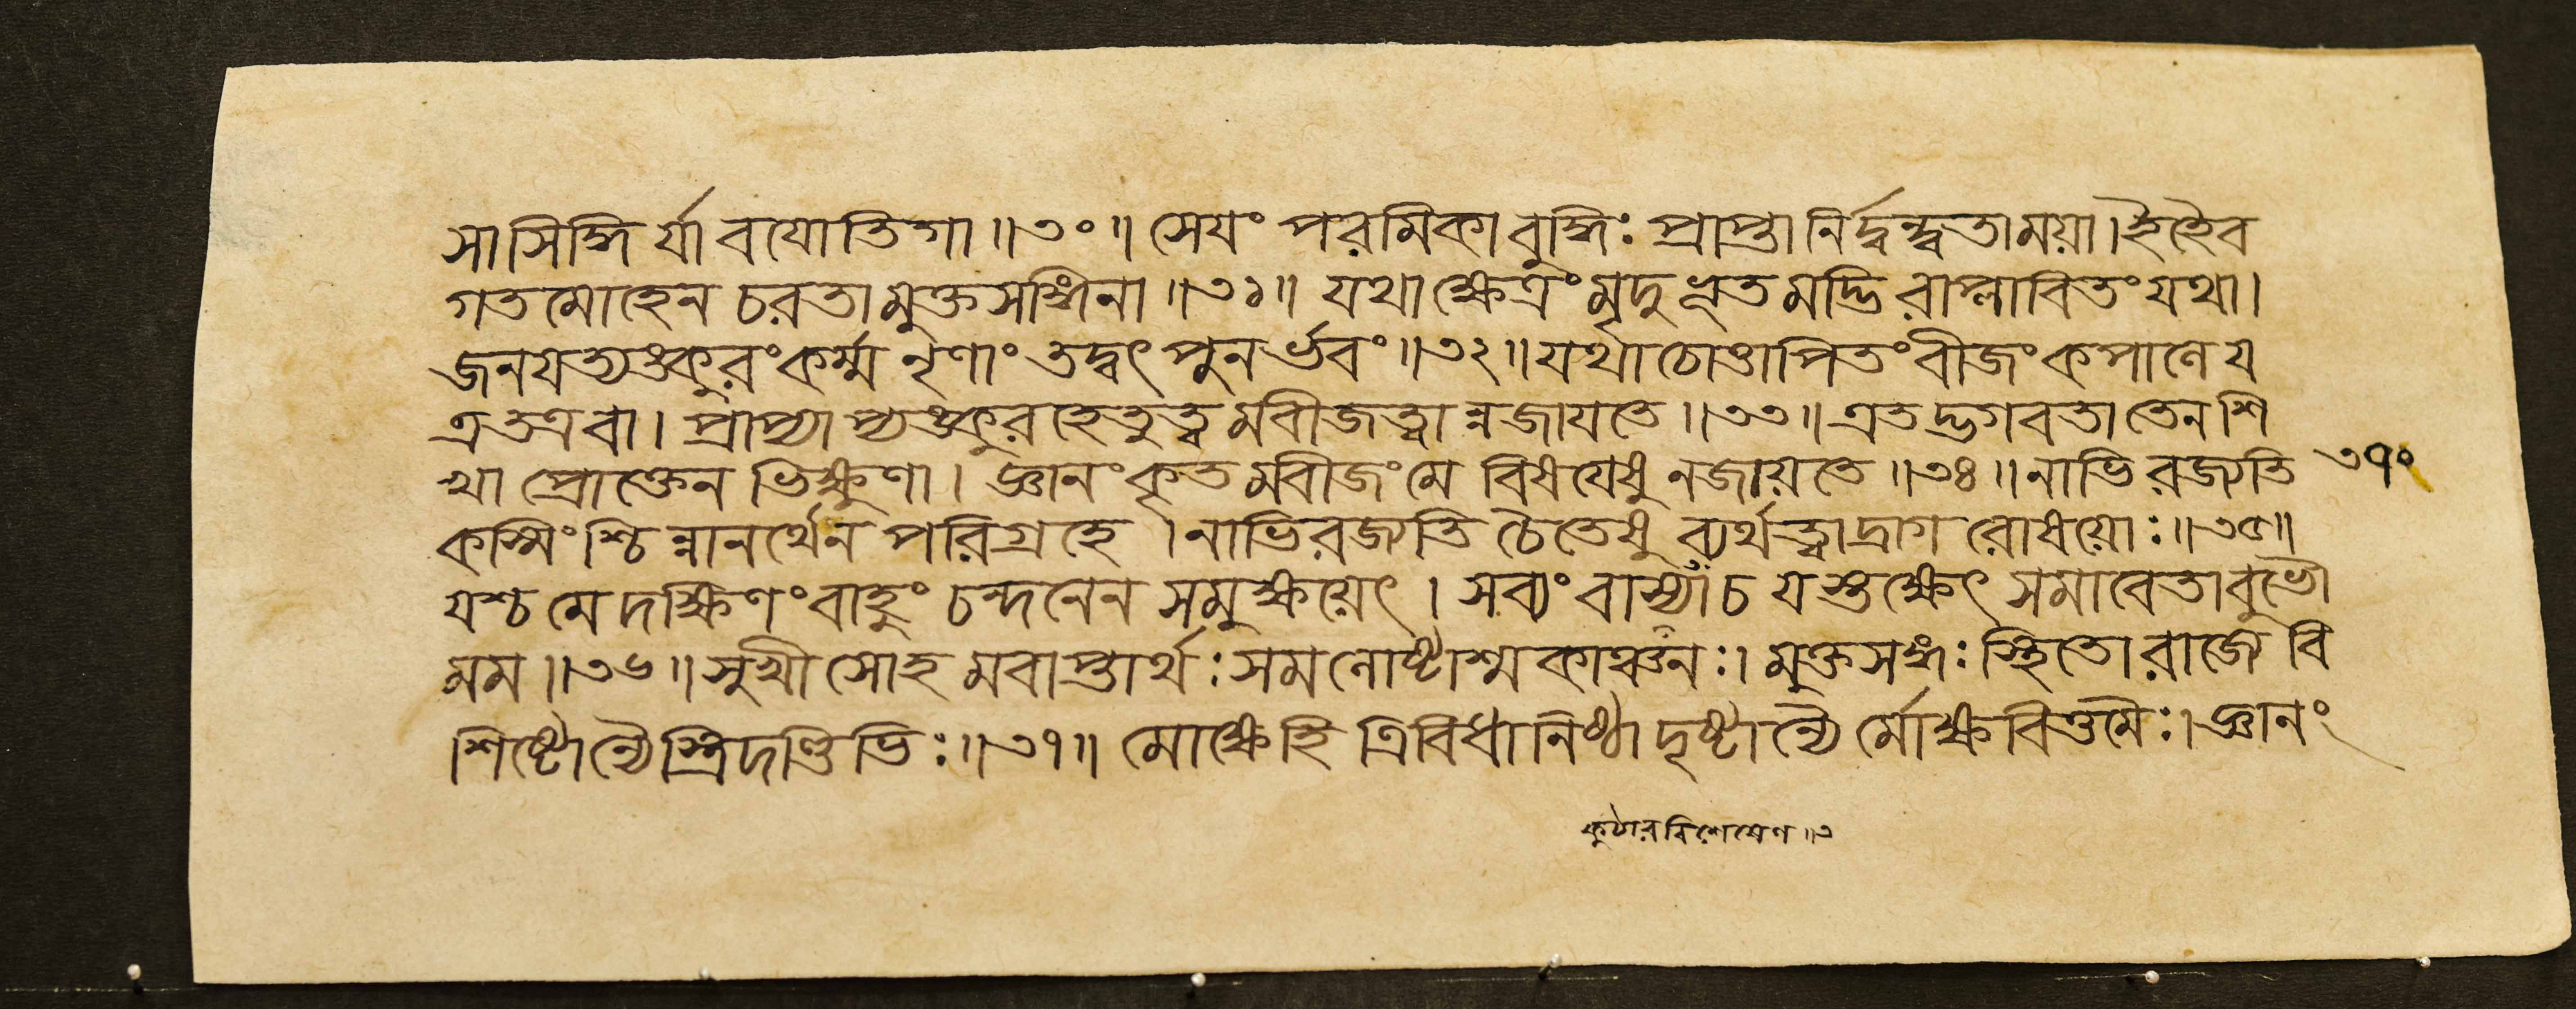 সাসিদ্ধি র্যা বযোতিগা ॥৩০॥ সেযং পরমিকাবুদ্ধিঃ প্রাপ্তানির্দ্বন্দ্বতাময়া। ইহৈব
গতমোহেন চরতামুক্তসঙ্গিনা ॥৩১॥ যথাক্ষেত্রং মৃদুভূতমদ্ভিরাপ্লাবিতংযথা।
জনযত্যঙ্কুরংকর্ম্ম নৃণাং তদ্বৎ পুনর্ভবং ॥৩২॥ যথাচোত্তাপিতংবীজংকপালে য
ত্রতত্রবা। প্রাপ্যাপ্যঙ্কুরহেতুত্বমবীজত্বান্নজাযতে ॥৩৩॥ এতদ্ভগবতাতেনশি
খাপ্রোক্তেন ভিক্ষুণা। জ্ঞানংকৃতমবীজংমে বিষযেষু নজায়তে ॥৩৪॥ নাভিরজ্যতি ৩৭০
কস্মিংশ্চিন্নানর্থেনপরিগ্রহে। নাভিরজ্যতি চৈতেষু ব্যর্থত্বাদ্রাগরোষয়োঃ ॥৩৫॥
যশ্চ মেদক্ষিণংবাহুং চন্দনেন সমুক্ষয়েৎ। সব্যংবাস্যাচযস্তক্ষেৎ সমাবেতাবুভৌ
মম ॥৩৬॥ সুখীসোহমবাপ্তার্থঃ সমলোষ্টাশ্মকাঞ্চনঃ। মুক্তসঙ্গঃ স্থিতোরাজ্যে বি
শিষ্টোন্যৈস্ত্রিদণ্ডিভিঃ ॥৩৭॥ মোক্ষেহি ত্রিবিধানিষ্ঠাদৃষ্টান্যৈর্মোক্ষবিত্তমৈঃ। জ্ঞানং
কুঠারবিশেষেণ ॥৩